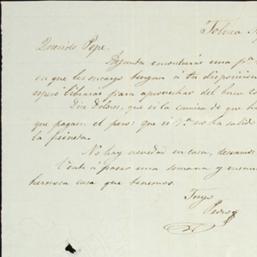 Toluca
Querido Pepe.
Ajunta encontrarás una
en que les encargo tengan á tu disposicion
libranzas para aprovechar del buen
Dice Dolores, que si la camisa de que
que pagan el peso: que si no ha salido
la peineta.
No hay novedad en casa, deseamos
Vente á pasar una semana y
hermosa casa que tenemos.
Tuyo
Pedro